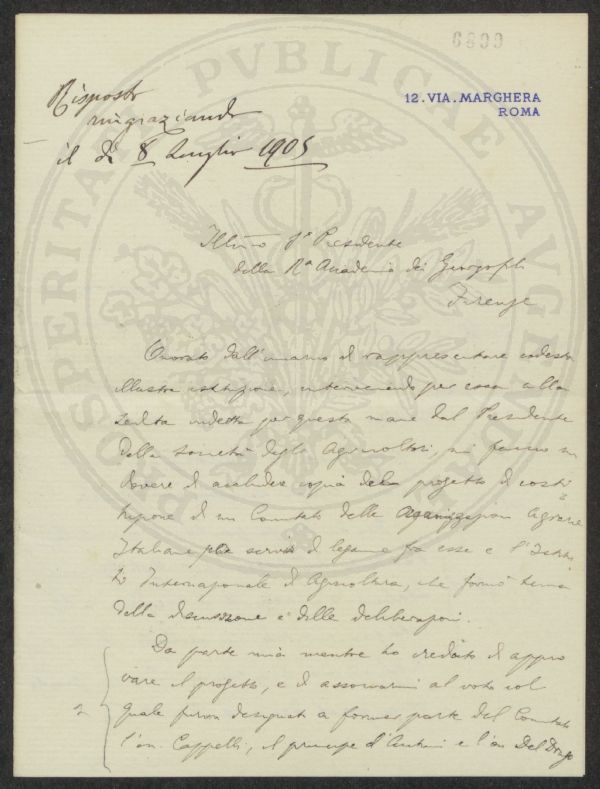 6800
12. VIA. MARGHERA
ROMA
Risposto
ringraziando
il dì 8 Luglio 1905
Illmo Sr Presidente
della Ra Accademia dei Georgofili
Firenze
Onorato dall'incarico di rappresentare codesta
illustre istituzione, intervenendo per essa alla
seduta indetta per questa mane dal Presidente
della società degli Agricoltori, mi faccio un
dovere di accludere copia del progetto di costi
tuzione di un Comitato delle Organizzazioni Agrarie
Italiane per servire di legame fra esse e l'Istitu
to Internazionale di Agricoltura, che formò tema
della discussione e delle deliberazioni.
Da parte mia mentre ho creduto di appro
vare il progetto, e di associarmi al voto col
quale furon designati a formar parte del Comitato
l'on. Cappelli, il principe d'Antuni e l'on Del Drago
PVBLICAE
PROSPERITATI
AVGENDAE